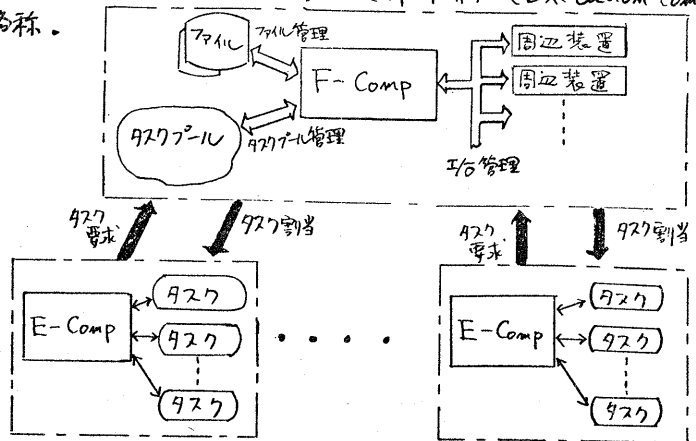 略称.
ファイル
ファイル管理
F-Comp
周辺装置
周辺装置
タスクプール
タスクプール管理
I/O管理
タスク
要求
タスク割当
タスク
要求
タスク割当
E-Comp
タスク
タスク
タスク
E-Comp
タスク
タスク
タスク